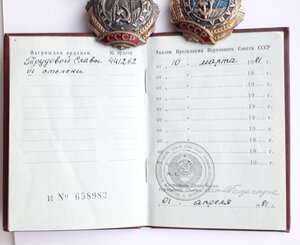 СССР
СССР
Награжден орденом
№ ордена
Трудовой Славы 441262
III степени
И № 658982
Указом Президиума Верховного Совета СССР
от 10 марта 1981 г.
от 19 г.
от 19 г.
от 19 г.
от 19 г.
от 19 г.
от 19 г.
от 19 г.
01 апреля 1981 г.